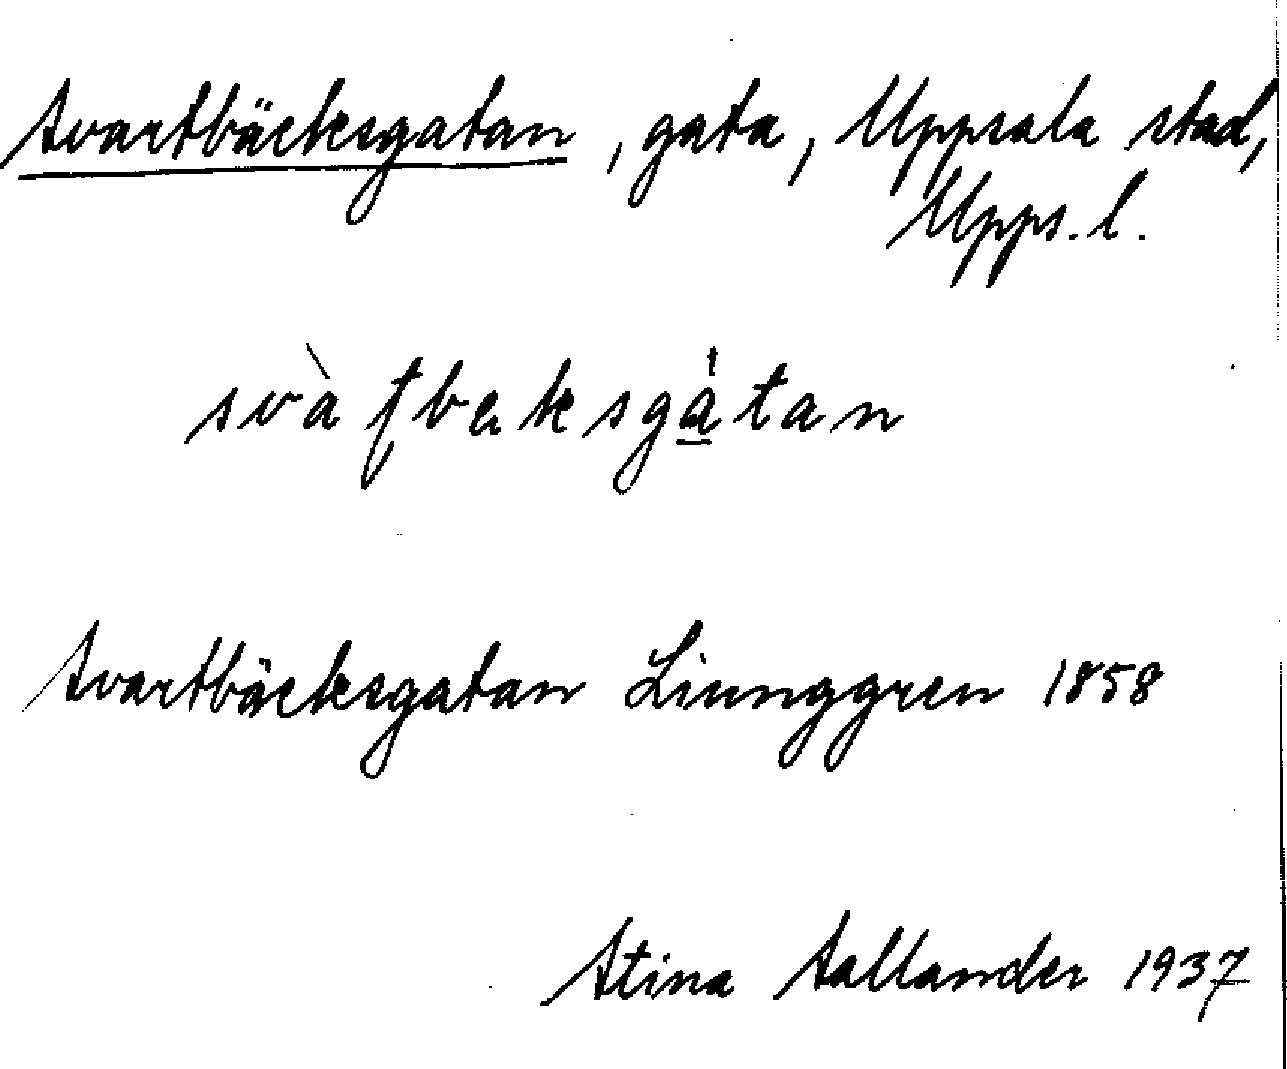 Svartbäcksgatan, gata, Uppsala stad,
Upps. l.
Svartbäcksgatan Liunggren 1858
Stina Sallander 1937